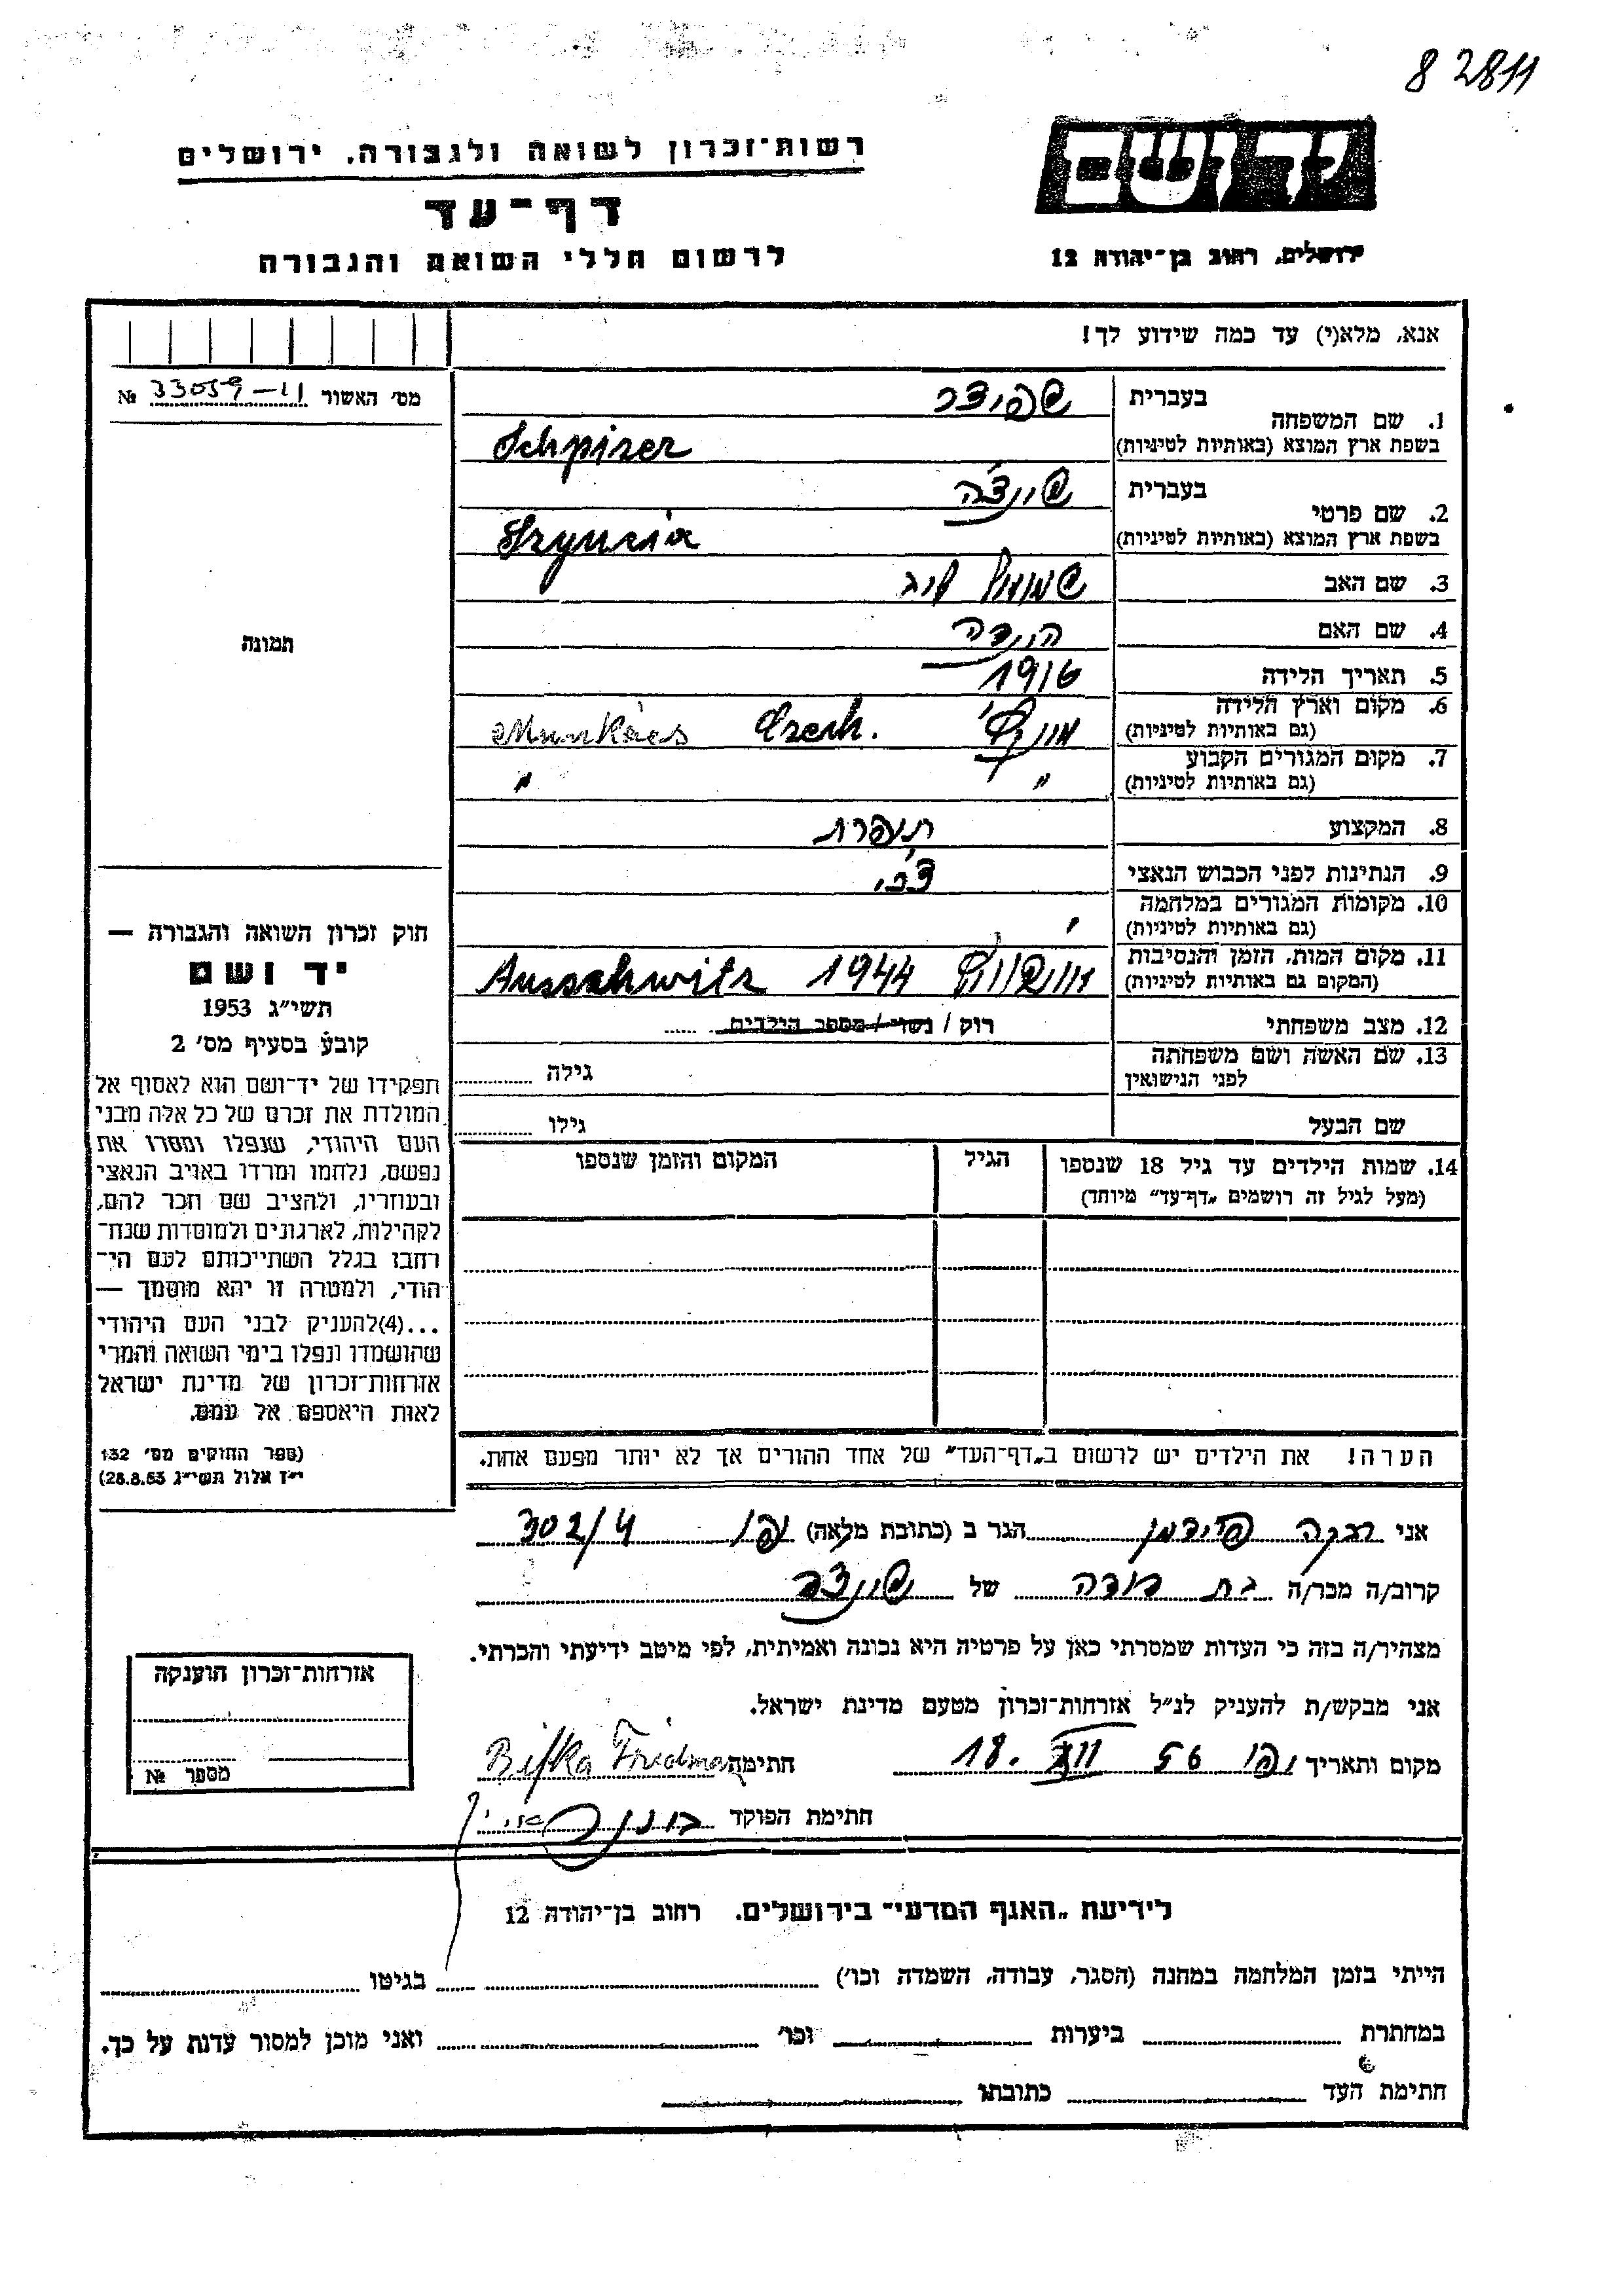 8 2811
יד ושם
רשות־זכרון לשואה ולגבורה, ירושלים
דף־עד
לרשום חללי השואה והגבורה
ירושלים, רחוב בן־יהודה 12
אנא, מלא(י) עד כמה שידוע לך!
מס׳ האשור 33059-11 №
תמונה
1. שם המשפחה
בעברית שפיצר
בשפת ארץ המוצא (באותיות לטיניות) Schpizer
2. שם פרטי
בעברית
בשפת ארץ המוצא (באותיות לטיניות)
3. שם האב שמואל
4. שם האם הינדה
5. תאריך הלידה 1916
6. מקום וארץ הלידה
(גם באותיות לטיניות) Czech. Munkács
7. מקום המגורים הקבוע
(גם באותיות לטיניות) " "
8. המקצוע תופרת
9. הנתינות לפני הכבוש הנאצי צ׳כי
10. מקומות המגורים במלחמה
(גם באותיות לטיניות)
11. מקום המות, הזמן והנסיבות
(המקום גם באותיות לטיניות) אושוויץ 1944 Ausschwitz
12. מצב משפחתי רוק / נשוי / מספר הילדים
13. שם האשה ושם משפחתה
לפני הנישואין גילה
שם הבעל גילו
14. שמות הילדים עד גיל 18 שנספו
(מעל לגיל זה רושמים „דף־עד״ מיוחד)
הגיל
המקום והזמן שנספו
הערה! את הילדים יש לרשום ב„דף־העד״ של אחד ההורים אך לא יותר מפעם אחת.
חוק זכרון השואה והגבורה —
יד ושם
תשי״ג 1953
קובע בסעיף מס׳ 2
תפקידו של יד־ושם הוא לאסוף אל
המולדת את זכרם של כל אלה מבני
העם היהודי, שנפלו ומסרו את
נפשם, נלחמו ומרדו באויב הנאצי
ובעוזריו, ולהציב שם וזכר להם,
לקהילות, לארגונים ולמוסדות שנח־
רבו בגלל השתייכותם לעם הי־
הודי, ולמטרה זו יהא מוסמך —
...(4)להעניק לבני העם היהודי
שהושמדו ונפלו בימי השואה והמרי
אזרחות־זכרון של מדינת ישראל
לאות היאספם אל עמם.
(ספר החוקים מס׳ 132
י״ז אלול תשי״ג 28.8.53)
אני רבקה פרידמן הגר ב (כתובת מלאה) עכו 302/4
קרוב/ה מכר/ה בת דודה של
מצהיר/ה בזה כי העדות שמסרתי כאן על פרטיה היא נכונה ואמיתית, לפי מיטב ידיעתי והכרתי.
אני מבקש/ת להעניק לנ״ל אזרחות־זכרון מטעם מדינת ישראל.
מקום ותאריך עכו 18. VII 56 חתימה Rifka Fridman
חתימת הפוקד
אזרחות־זכרון הוענקה
מספר №
לידיעת „האגף המדעי״ בירושלים, רחוב בן־יהודה 12
הייתי בזמן המלחמה במחנה (הסגר, עבודה, השמדה וכו׳) בגיטו
במחתרת ביערות וכו׳ ואני מוכן למסור עדות על כך.
חתימת העד כתובתו